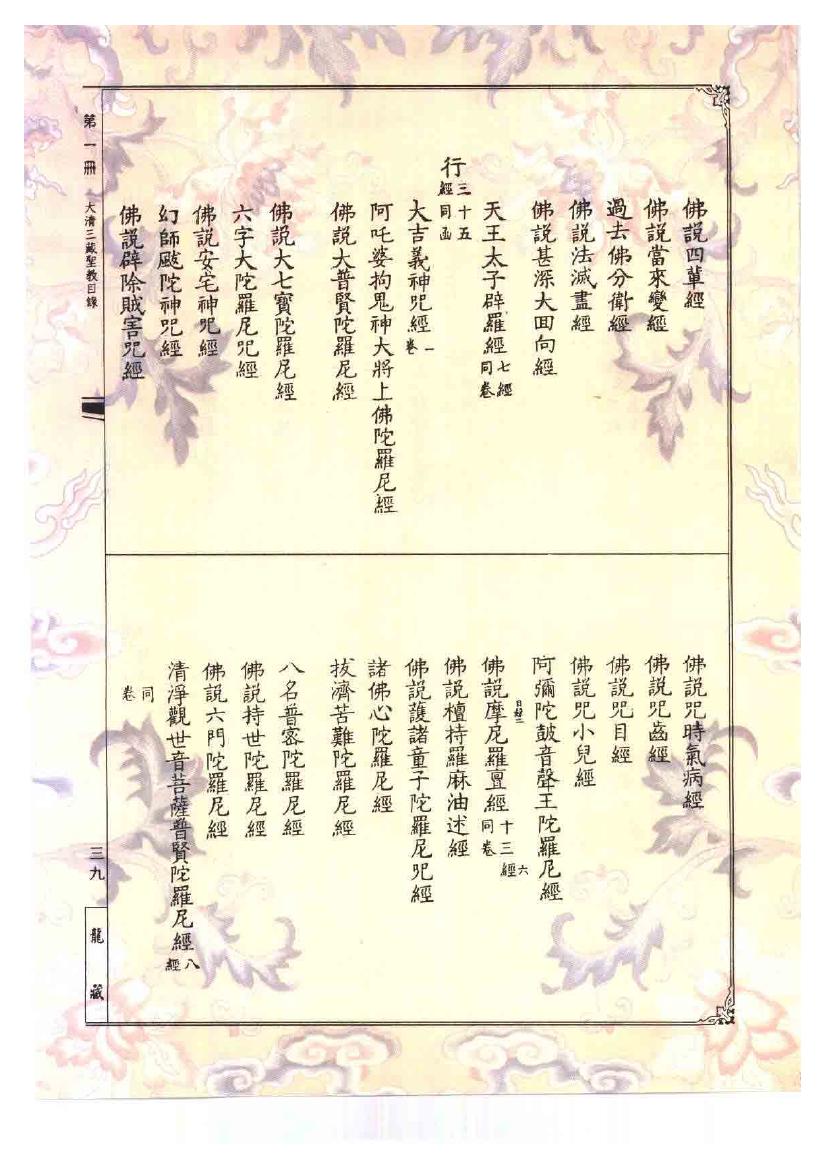 佛說四輩經
佛說當來變經
過去佛分衛經
佛說法滅盡經
佛說甚深大回向經
天王太子辟羅經七經同卷
行三十五經同函
大吉義神咒經一卷
阿吒婆拘鬼神大將上佛陀羅尼經
佛說大普賢陀羅尼經
佛說大七寶陀羅尼經
六字大陀羅尼咒經
佛說安宅神咒經
幻師颰陀神咒經
佛說辟除賊害咒經
佛說咒時氣病經
佛說咒齒經
佛說咒目經
佛說咒小兒經
阿彌陀鼓音聲王陀羅尼經
佛說摩尼羅亶經十三經同卷六
佛說檀持羅麻油述經
佛說護諸童子陀羅尼咒經
諸佛心陀羅尼經
拔濟苦難陀羅尼經
八名普密陀羅尼經
佛說持世陀羅尼經
佛說六門陀羅尼經
清淨觀世音菩薩普賢陀羅尼經八經
同卷
第一冊 大清三藏聖教目錄
三九
龍藏